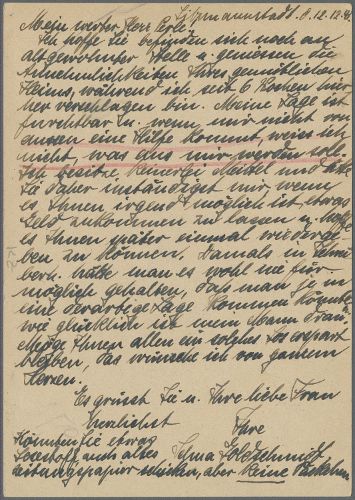 Litzmannstadt. d. 12.12.41
Mein werter Herr Perls!
Ich hoffe Sie befinden sich noch an
altgewohnter Stelle u. genießen die
Annehmlichkeiten Ihres gemütlichen
Heims, während ich seit 6 Wochen hier-
her verschlagen bin. Meine Lage ist
furchtbar u. wenn mir nicht von
aussen eine Hilfe kommt, weiss ich
nicht, was aus mir werden soll.
Ich besitze keinerlei Mittel und bitte
Sie daher inständigst mir, wenn
es Ihnen irgend möglich ist, etwas
Geld zukommen zu lassen u. hoffe
es Ihnen später einmal wiederge-
ben zu können. Damals in
hätte man es wohl nie für
möglich gehalten, daß man je in
eine derartige Lage kommen könnte,
wie glücklich ist mein Mann dran.
Möge Ihnen allen ein solches Los erspart
bleiben, das wünsche ich von ganzem
Herzen.
Es grüsst Sie u. Ihre liebe Frau
herzlichst Ihre
Könnten Sie etwas Irma Goldschmidt
Lesestoff auch altes
Zeitungspapier schicken, aber keine Päckchen